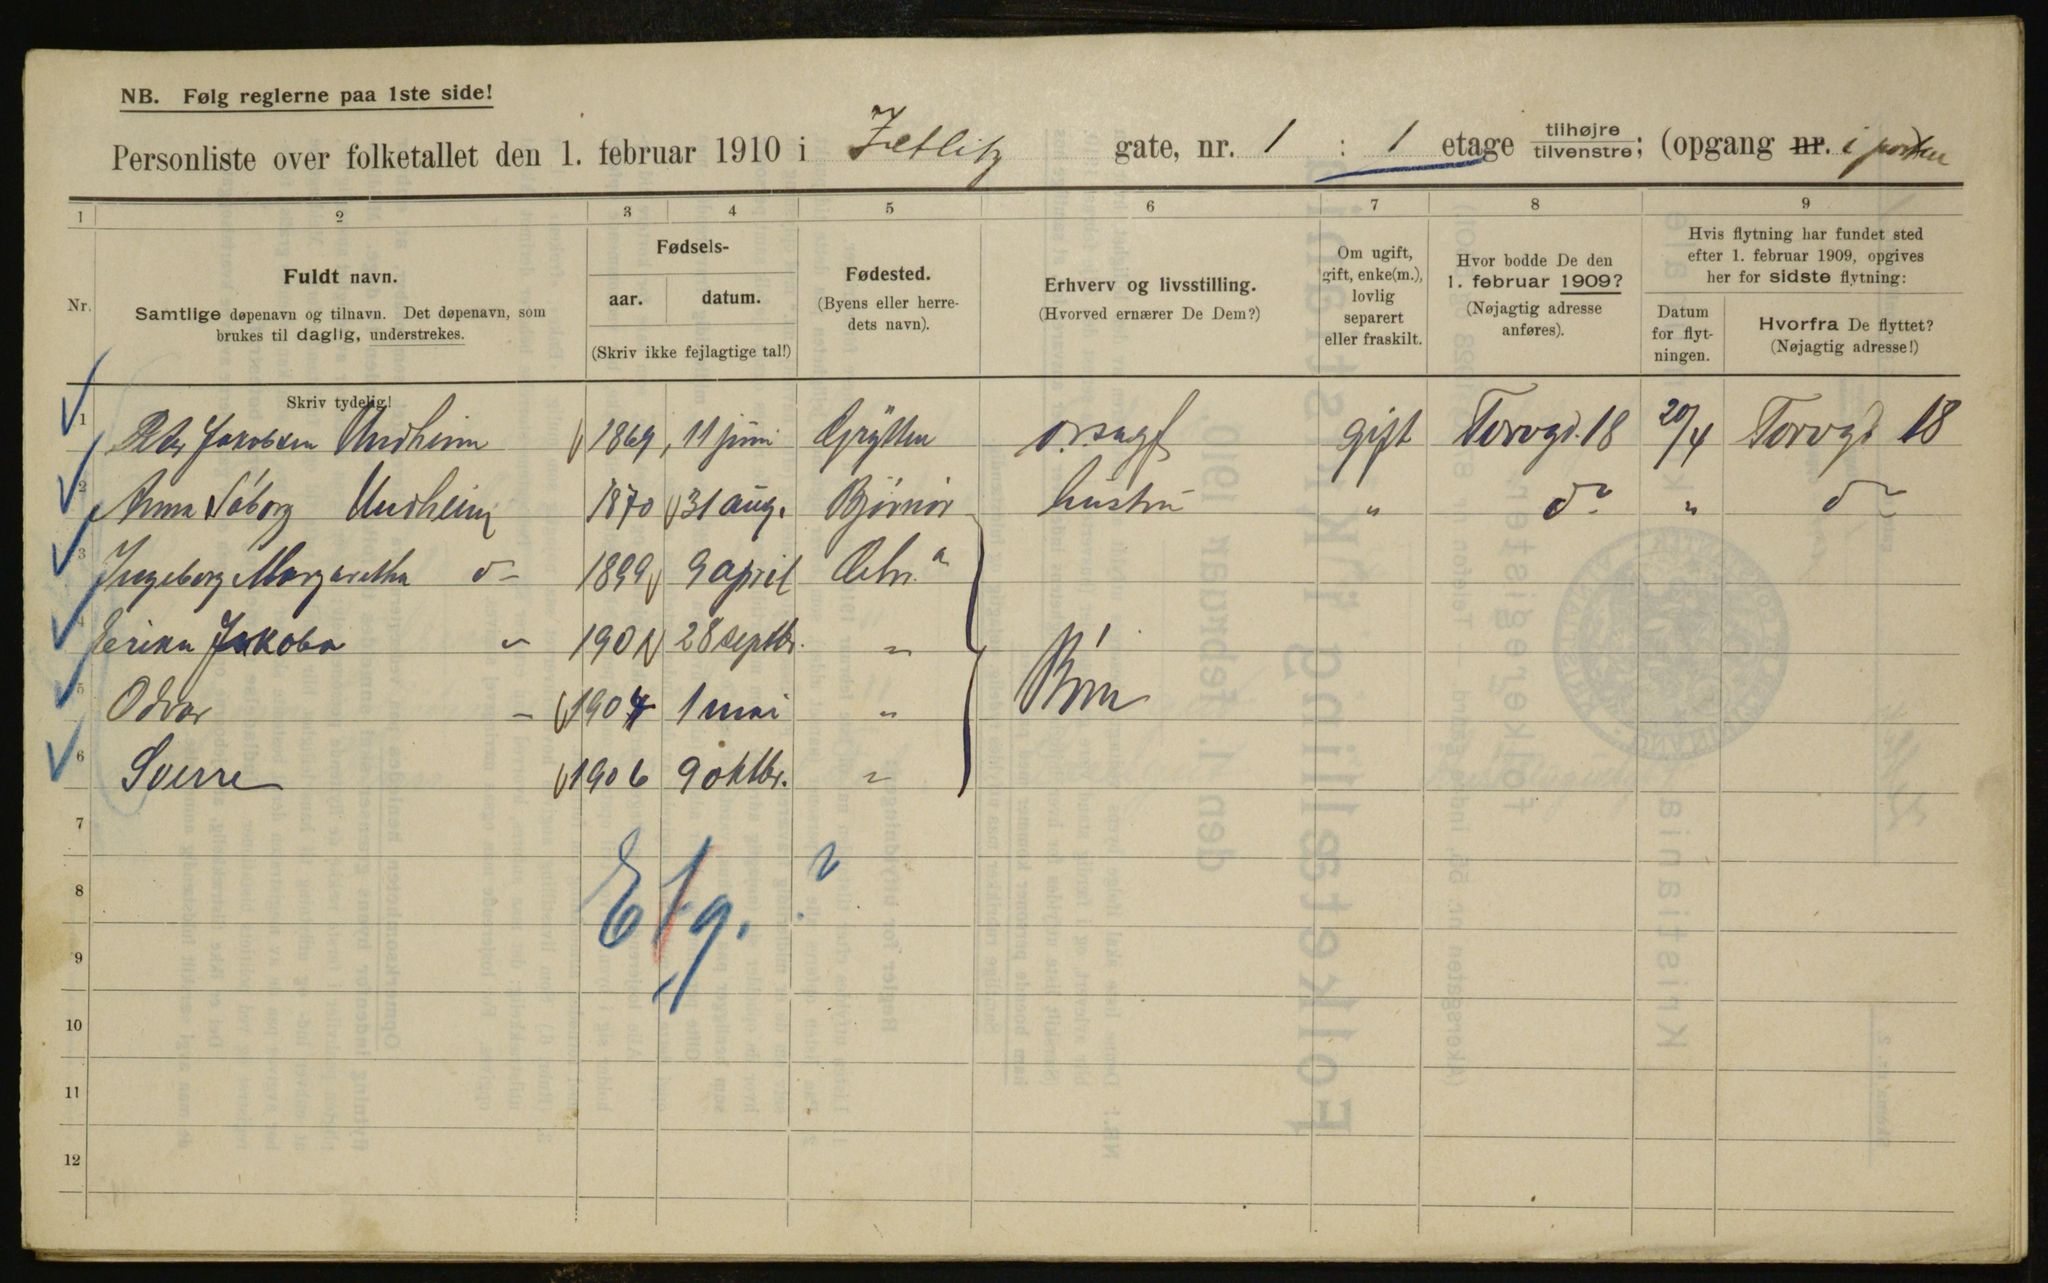 NB. Følg reglerne paa 1ste side!
Personliste over folketallet den 1. februar 1910 i Zetlitz gate, nr. 1 : 1 etage tilhøjre tilvenstre; (opgang nr. i porten
1 2 3 4 5 6 7 8 9
Nr.
Fuldt navn.
Samtlige døpenavn og tilnavn. Det døpenavn, som
brukes til daglig, understrekes.
Skriv tydelig!
Fødsels-
aar. datum.
(Skriv ikke fejlagtige tal!)
Fødested.
(Byens eller herre-
dets navn).
Erhverv og livsstilling.
(Hvorved ernærer De Dem?)
Om ugift,
gift, enke(m.),
lovlig
separert
eller fraskilt.
Hvor bodde De den
1. februar 1909?
(Nøjagtig adresse
anføres).
Hvis flytning har fundet sted
efter 1. februar 1909, opgives
her for sidste flytning:
Datum
for flyt-
ningen.
Hvorfra De flyttet?
(Nøjagtig adresse!)
1 Jakobsen Undheim 1869 11 juni Grytten gift Torvgd. 18 20/4 Torvgd 18
2 Anna Søborg Undheim 1870 31 aug. Bjørnør hustru " do " do
3 Ingeborg Margaretha do 1899 9 april
4 Jakoba " 190 28 septbr. "
5 Odvar " 1904 1 mai " Børn
6 Sverre 1906 9 oktbr. "
7
8
9
10
11
12